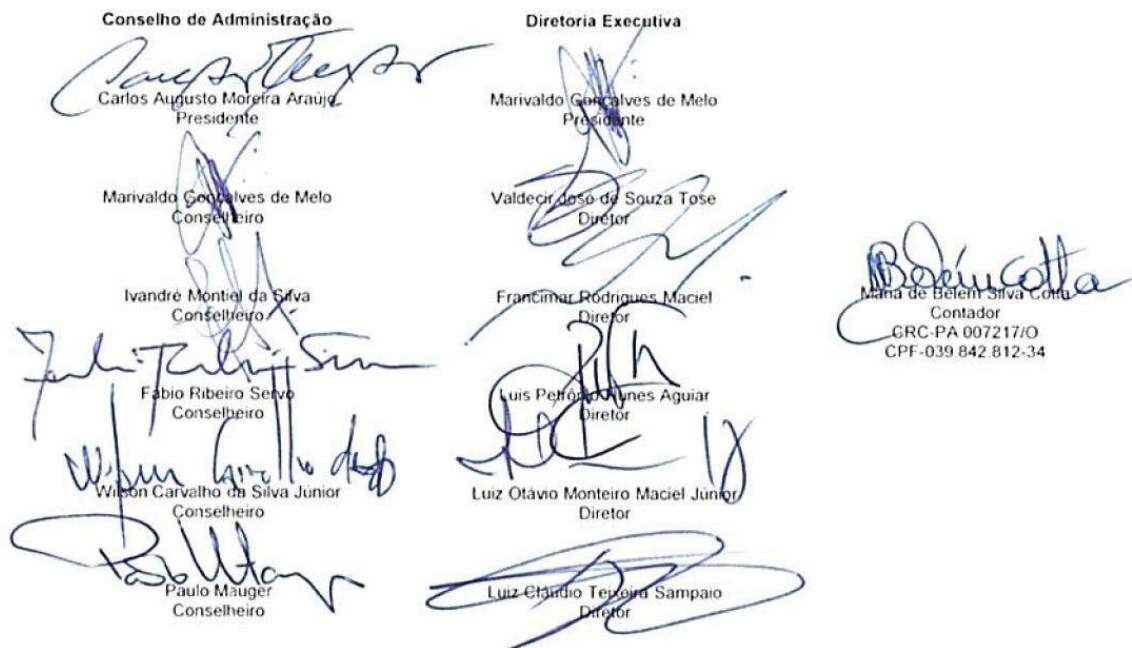 Conselho de Administração
Carlos Augusto Moreira Araújo
Presidente
Marivaldo Gonçalves de Melo
Conselheiro
Ivandré Montiel da Silva
Conselheiro
Fabio Ribeiro Servo
Conselheiro
Wilson Carvalho da Silva Júnior
Conselheiro
Paulo Mauger
Conselheiro
Diretoria Executiva
Marivaldo Gonçalves de Melo
Presidente
Valdecir José de Souza Tose
Diretor
Francimar Rodrigues Maciel
Diretor
Luis Petrônio Nunes Aguiar
Diretor
Luiz Otávio Monteiro Maciel Júnior
Diretor
Luiz Cláudio Teixeira Sampaio
Diretor
Belém Cotta
Maria de Belém Silva Cotta
Contador
CRC-PA 007217/O
CPF-039.842.812-34